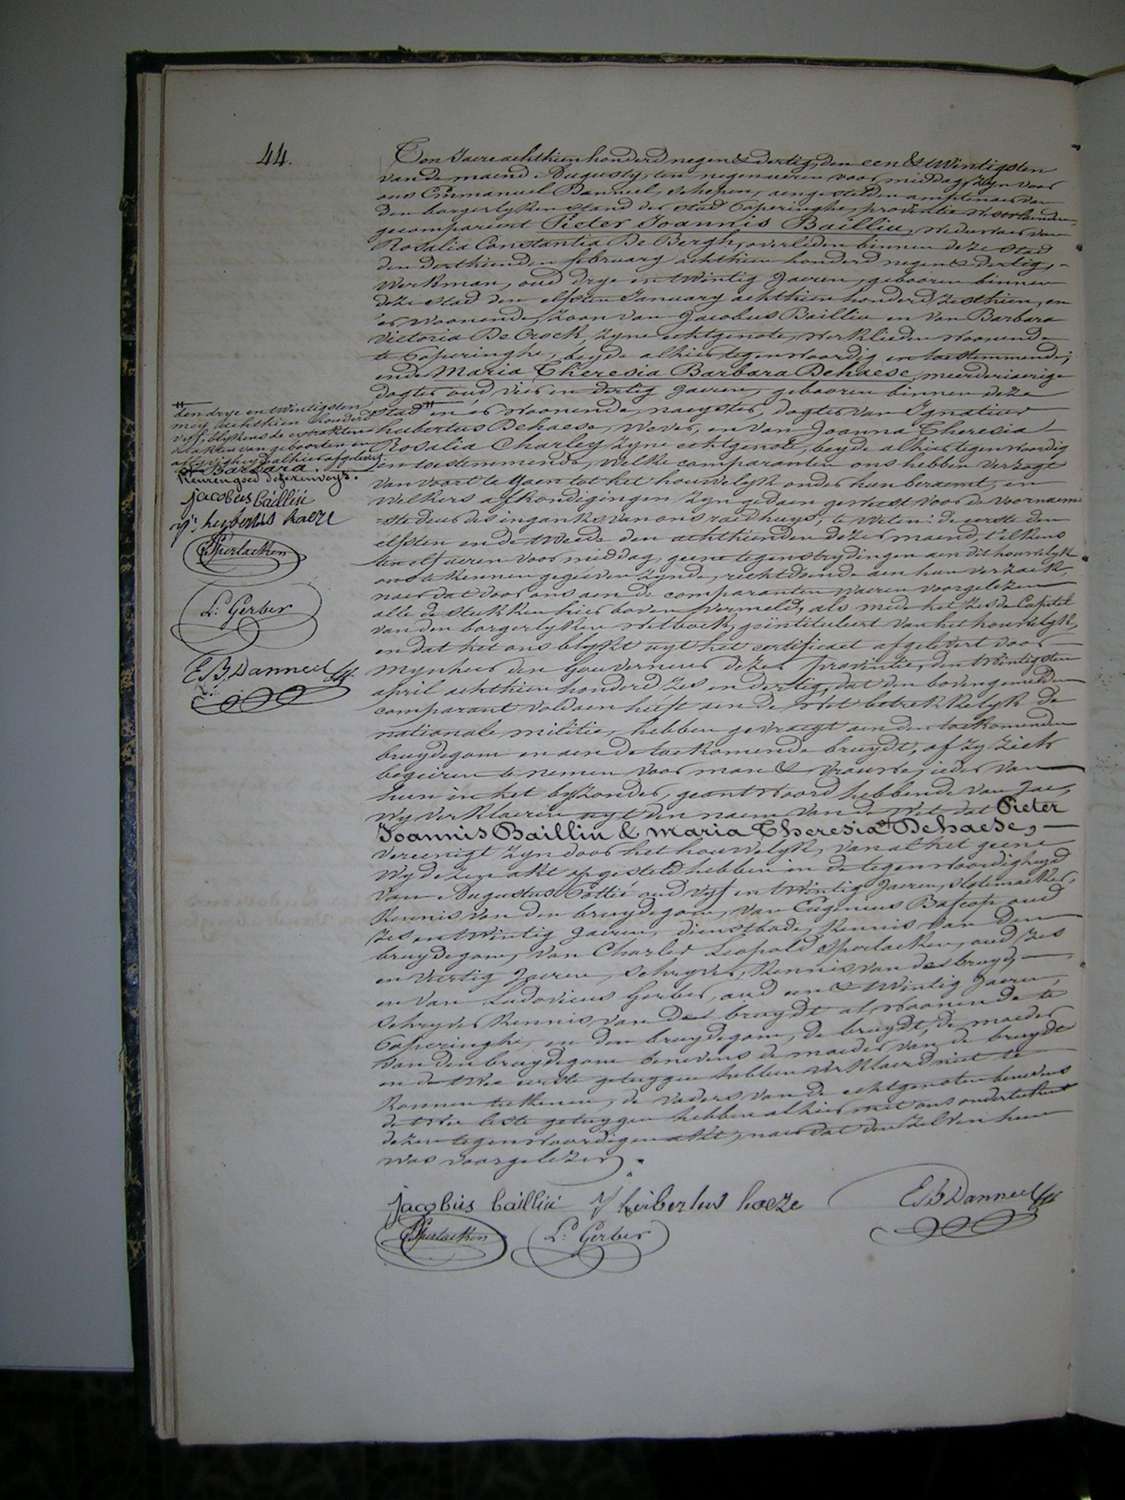 44.
Ten Jaere achthien honderd negen & dertig, den een & twintigsten
van de maend Augusty, ten negen uren voor middag, zyn voor
ons Emmanuel Danneel, schepen, aengestelden amptenaer van
den borgerlyken stand der stad Poperinghe, provintie Westvlaenderen
gecompareert Pieter Joannis Bailliu, weduwaer van
Rosalia Constantia De Bergh, overleden binnen deze stad
den derthienden february achthien honderd negen & dertig,
werkman, oud drye en twintig jaeren, gebooren binnen
deze stad den elfsten January achthien honderd zesthien, en
er woonende, zoon van Jacobus Bailliu en van Barbara
Victoria De Crock, zyne echtgenote, werklieden woonende
te Poperinghe, beyde alhier tegenwoordig en toestemmende;
ende Maria Theresia Barbara Dehaese, meerderjaerige
dogter oud vier en dertig jaeren, gebooren binnen deze
stad en er woonende, naeyster, dogter van Ignatius
hubertus Dehaese, wever, en van Joanna Theresia
Rosalia Charley zyne echtgenote, beyde alhier tegenwoordig
en toestemmende, welke comparanten ons hebben verzogt
van voort te gaen tot het houwelyk onder hun beraemt, en
welkers afkondigingen zyn gedaen geweest voor de voornaem
ste deur des ingangs van ons raedhuys, te weten: de eerste den
elfsten en de tweede den achthienden dezer maend, t'elkens
ten elf ueren voor middag, geene tegenstrydingen aen dit houwelyk
ons te kennen gegeven zynde, rechtdoende aen hun verzoek,
naer dat door ons aen de comparanten waeren voorgelezen
alle de stukken hier boven vermeld, als mede het zesde Capitel
van den borgerlyken wetboek, geïntituleert van het houwelyk,
en dat het ons blykt uyt het certificaet afgelevert door
mynheer den Gouverneur dezer provintie, den twintigsten
april achthien honderd zes en dertig, dat den bovengemelden
comparant voldaen heeft aen de wet betrekkelyk de
nationale militie, hebben gevraegt aen den toekomenden
bruydegom en aen de toekomende bruydt, of zy zich
begeiren te nemen voor man & vrouwe, ieder van
hun in het byzonder, geantwoord hebbende van jae,
wy verklaeren uyt den naem van de wet dat Pieter
Joannis Bailliu & Maria Theresia Dehaese,
vereenigt zyn door het houwelyk, van al het geene
wy dezen akt opgesteld hebben in de tegenwoordigheyd
van Augustus Cottié oud vyf en twintig jaeren, slotemaeker,
kennis van den bruydegom, van Eugenius Bascop oud
zes en twintig jaeren, dienstbode, kennis van den
bruydegom, van Charles Leopold Sperlaeken, oud zes
en viertig jaeren, schryver, kennis van de bruyd,
en van Ludovicus Gerber, oud een & twintig jaeren,
schryver kennis van de bruydt al woonende te
Poperinghe, en den bruydegom, de bruydt, de moeder
van den bruydegom benevens de moeder van de bruydt
en de twee eerste getuygen hebben verklaerd niet te
konnen teekenen, de vaders van de echtgenoten benevens
de twee leste getuygen hebben alhier met ons onderteekent
dezen tegenwoordigen akt, naer dat den zelven hun
was voorgelezen.
jacobus bailliu
hubertus haeze
E B Danneel
Sperlaeken
L: Gerber
den drye en twintigsten
mey achthien honderd
vyf, blykens de extrakten
Barbara.
Renvoy goedgekeurd
jacobus bailliu
hubertus haeze
Sperlaeken
L: Gerber
E B Danneel